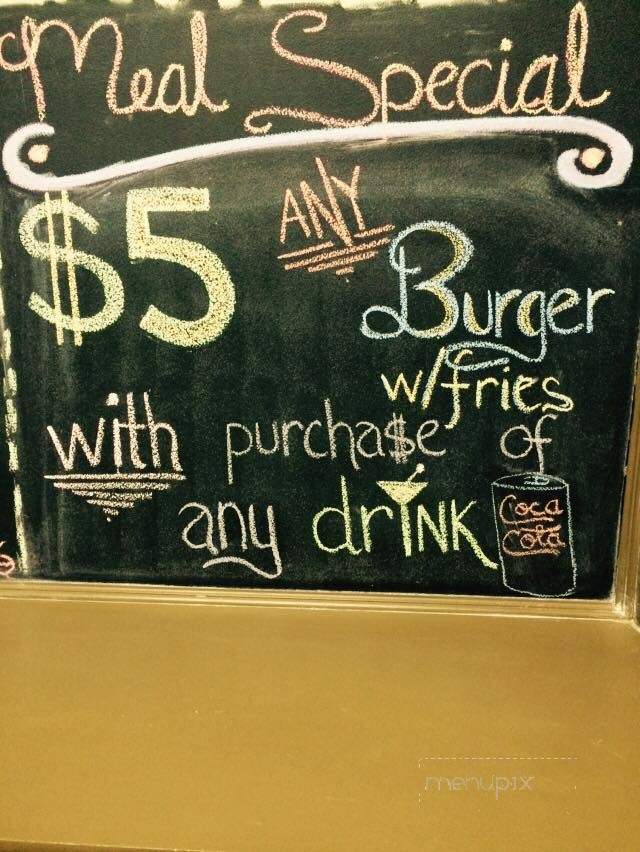 Meal Special
$5 ANY
Burger
w/fries
with purcha$e of
any drINK
Coca
Cola
menupix